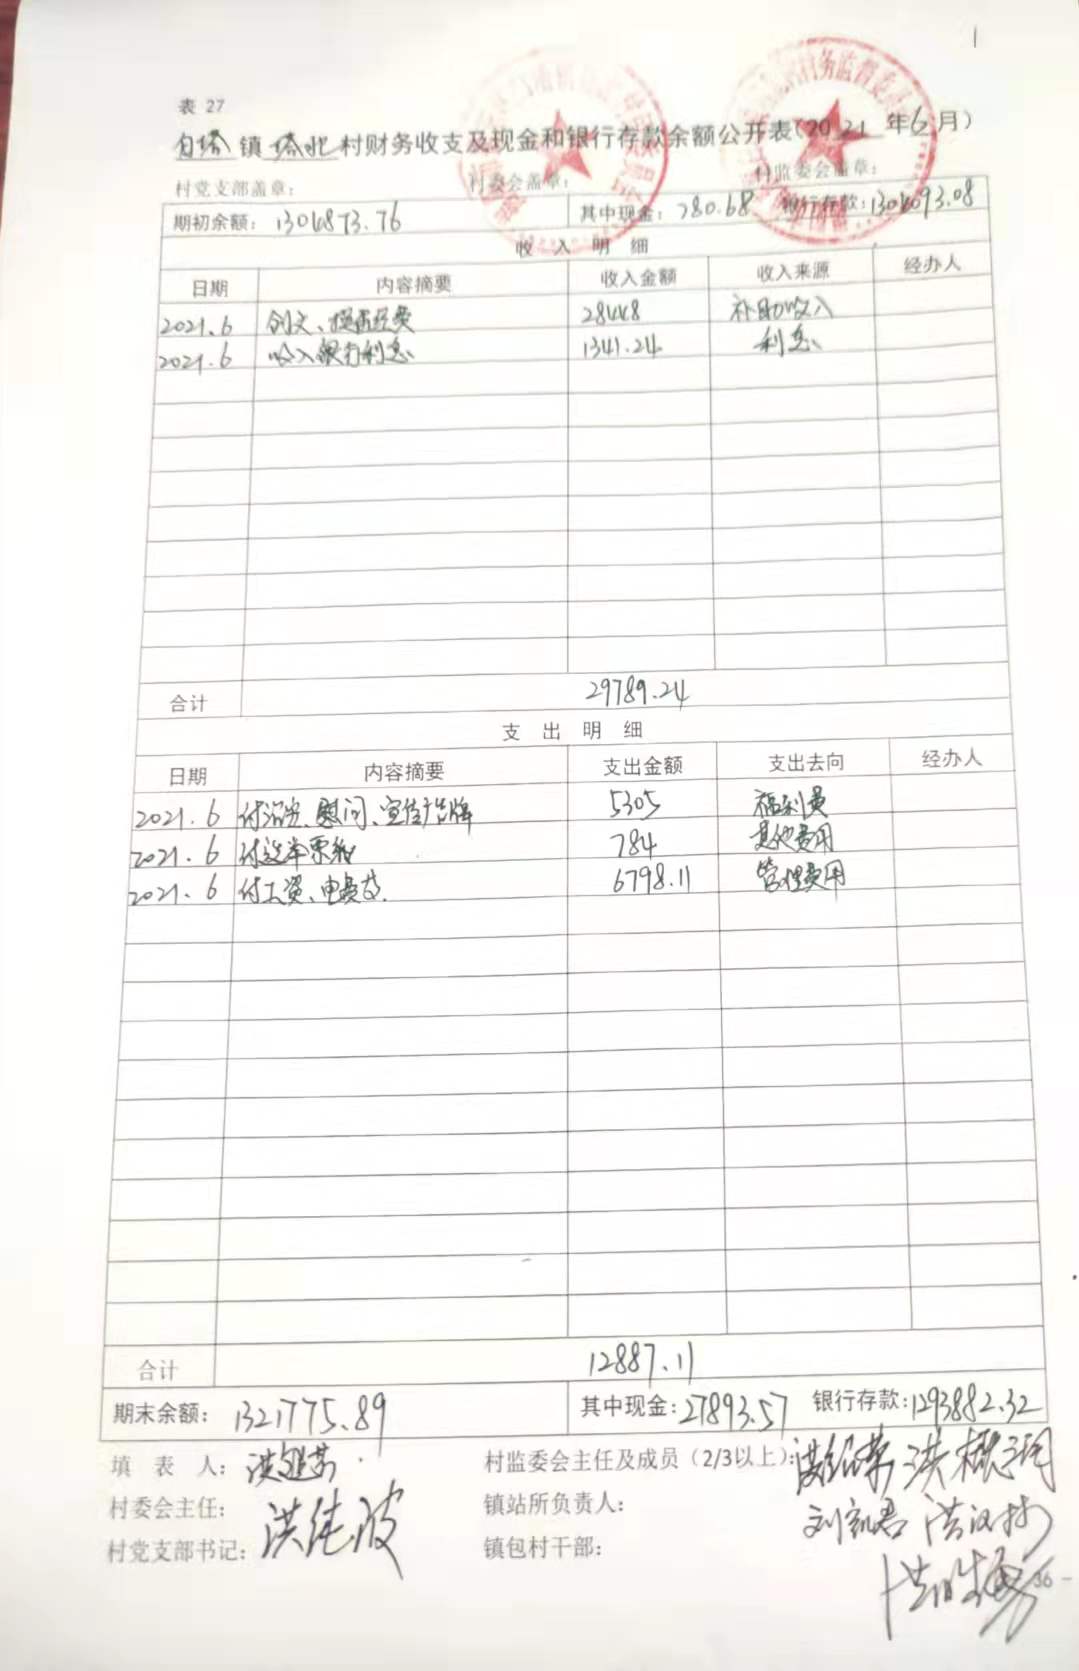 1
表 27
白塔镇塔北村财务收支及现金和银行存款余额公开表(2021年6月)
村党支部盖章: 村委会盖章: 村监委会盖章:
期初余额: 1304873.76 其中现金: 780.68 银行存款: 1304093.08
收入明细
日期 内容摘要 收入金额 收入来源 经办人
2021.6 创文、 28448 补助收入
2021.6 收入银行利息 1341.24 利息
合计 29789.24
支出明细
日期 内容摘要 支出金额 支出去向 经办人
2021.6 付治安、慰问、宣传广告牌 5305 福利费
2021.6 付选举票箱 784 其他费用
2021.6 付工资、电费等. 6798.11 管理费用
合计 12887.11
期末余额: 1321775.89 其中现金: 27893.57 银行存款: 1293882.32
填表人: 村监委会主任及成员(2/3以上):
村委会主任: 洪纯波 镇站所负责人:
村党支部书记: 镇包村干部:
36 -